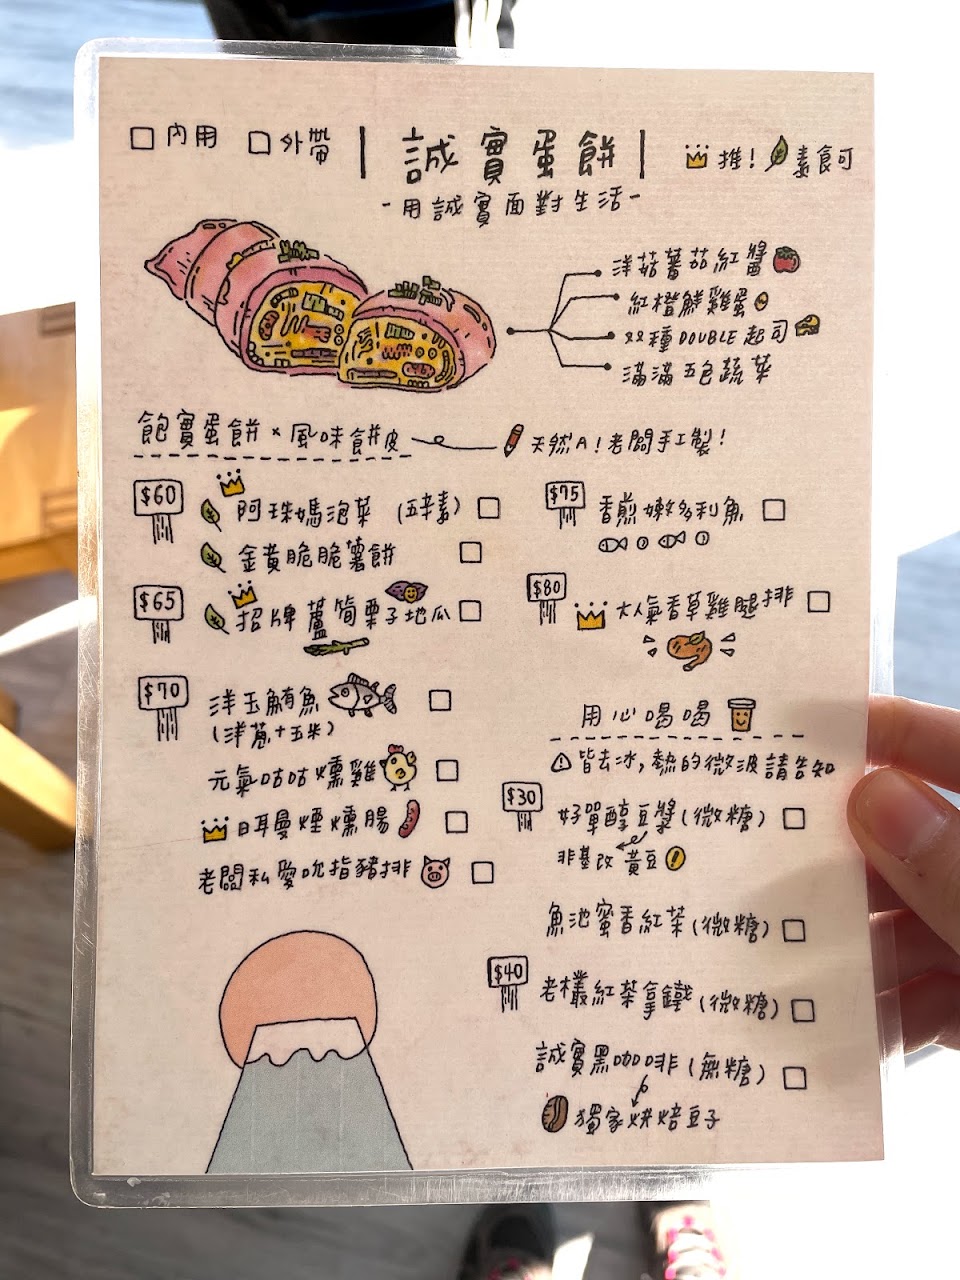 內用
外帶
誠實蛋餅
推！
素食可
-用誠實面對生活-
洋菇蕃茄紅醬
紅橙鮮雞蛋
双種DOUBLE起司
滿滿五色蔬菜
飽實蛋餅×風味餅皮
天然ㄟ！老闆手工製！
$60
阿珠媽泡菜 (五辛素)
金黃脆脆薯餅
$65
招牌蘆筍栗子地瓜
$70
洋玉鮪魚
(洋蔥+玉米)
元氣咕咕燻雞
日耳曼煙燻腸
老闆私愛吮指豬排
$75
香煎嫩多利魚
$80
大人氣香草雞腿排
用心喝喝
皆去冰，熱的微波請告知
$30
好單醇豆漿(微糖)
非基改 黃豆
魚池蜜香紅茶(微糖)
$40
老欉紅茶拿鐵(微糖)
誠實黑咖啡(無糖)
獨家烘焙豆子